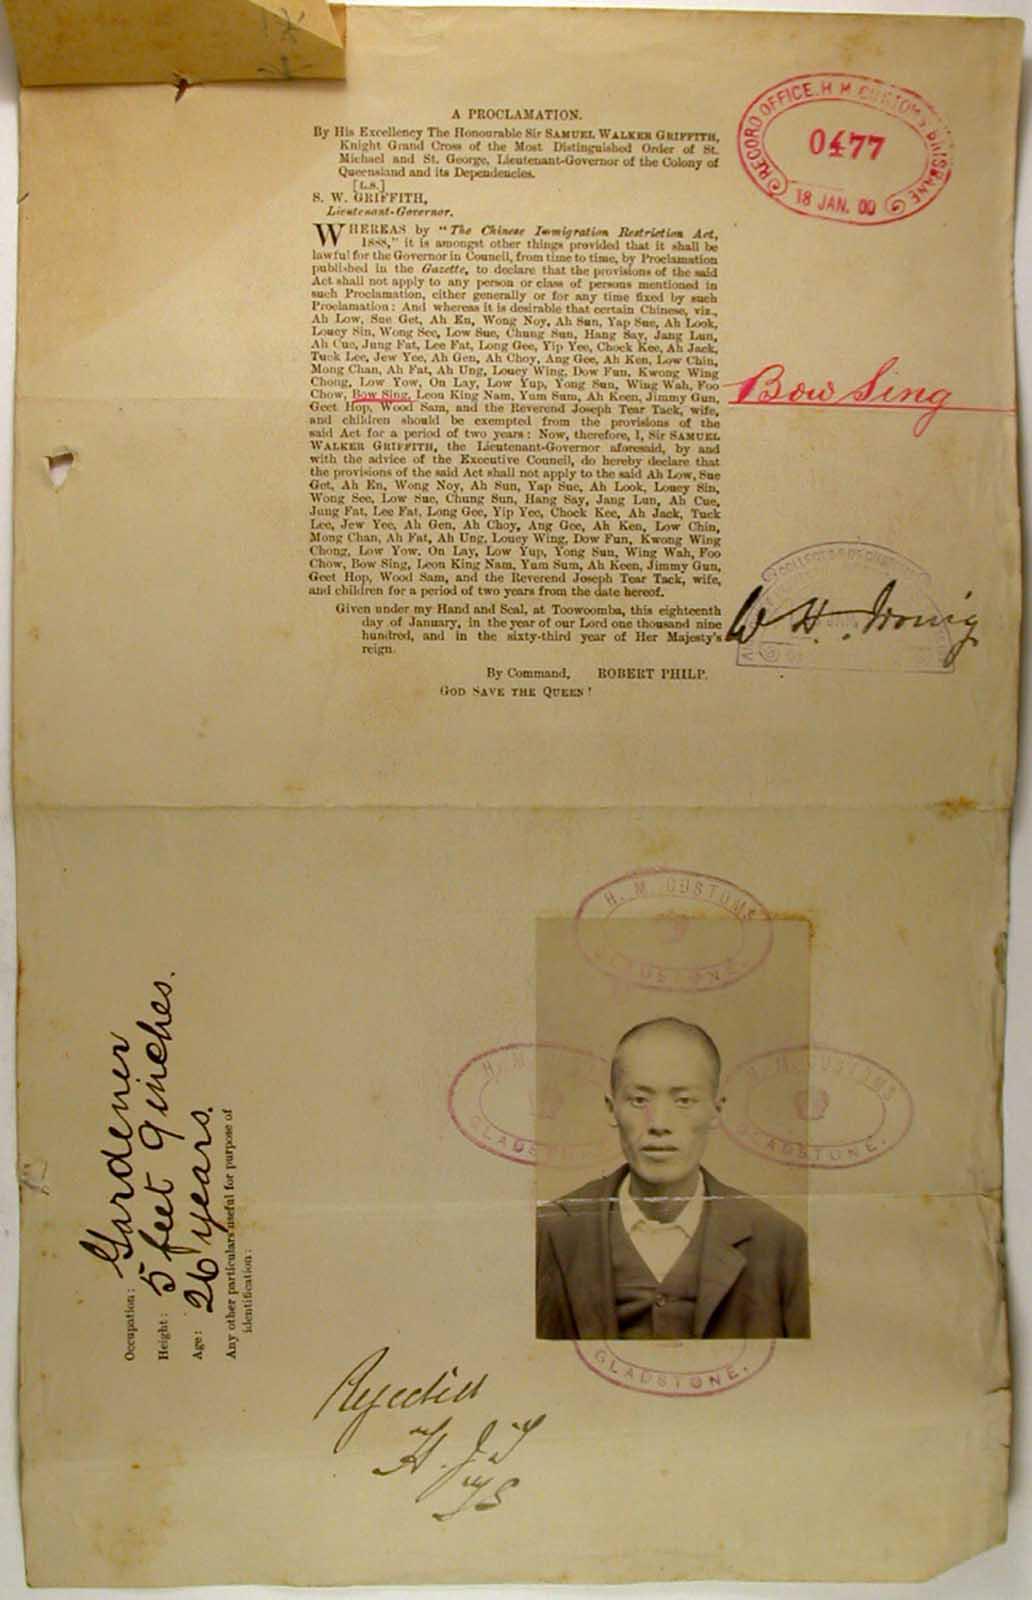 A PROCLAMATION.
By His Excellency The Honourable Sir SAMUEL WALKER GRIFFITH,
Knight Grand Cross of the Most Distinguished Order of St.
Michael and St. George, Lieutenant-Governor of the Colony of
Queensland and its Dependencies.
[L.S.]
S. W. GRIFFITH,
Lieutenant-Governor.
WHEREAS by "The Chinese Immigration Restriction Act,
1888," it is amongst other things provided that it shall be
lawful for the Governor in Council, from time to time, by Proclamation
published in the Gazette, to declare that the provisions of the said
Act shall not apply to any person or class of persons mentioned in
such Proclamation, either generally or for any time fixed by such
Proclamation: And whereas it is desirable that certain Chinese, viz.,
Ah Low, Sue Get, Ah En, Wong Noy, Ah Sun, Yap Sue, Ah Look,
Louey Sin, Wong See, Low Sue, Chung Sun, Hang Say, Jang Lun,
Ah Cue, Jung Fat, Lee Fat, Long Gee, Yip Yee, Chock Kee, Ah Jack,
Tuck Lee, Jew Yee, Ah Gen, Ah Choy, Ang Gee, Ah Ken, Low Chin,
Mong Chan, Ah Fat, Ah Ung, Louey Wing, Dow Fun, Kwong Wing
Chong, Low Yow, On Lay, Low Yup, Yong Sun, Wing Wah, Foo
Chow, Bow Sing, Leon King Nam, Yum Sum, Ah Keen, Jimmy Gun,
Geet Hop, Wood Sam, and the Reverend Joseph Tear Tack, wife,
and children should be exempted from the provisions of the
said Act for a period of two years: Now, therefore, I, Sir SAMUEL
WALKER GRIFFITH, the Lieutenant-Governor aforesaid, by and
with the advice of the Executive Council, do hereby declare that
the provisions of the said Act shall not apply to the said Ah Low, Sue
Get, Ah En, Wong Noy, Ah Sun, Yap Sue, Ah Look, Louey Sin,
Wong See, Low Sue, Chung Sun, Hang Say, Jang Lun, Ah Cue,
Jung Fat, Lee Fat, Long Gee, Yip Yee, Chock Kee, Ah Jack, Tuck
Lee, Jew Yee, Ah Gen, Ah Choy, Ang Gee, Ah Ken, Low Chin,
Mong Chan, Ah Fat, Ah Ung, Louey Wing, Dow Fun, Kwong Wing
Chong, Low Yow, On Lay, Low Yup, Yong Sun, Wing Wah, Foo
Chow, Bow Sing, Leon King Nam, Yum Sum, Ah Keen, Jimmy Gun,
Geet Hop, Wood Sam, and the Reverend Joseph Tear Tack, wife,
and children for a period of two years from the date hereof.
Given under my Hand and Seal, at Toowoomba, this eighteenth
day of January, in the year of our Lord one thousand nine
hundred, and in the sixty-third year of Her Majesty's
reign.
By Command, ROBERT PHILP.
GOD SAVE THE QUEEN!
RECORD OFFICE. H. M. CUSTOMS. BRISBANE
0477
18 JAN. 00
Bow Sing
W. H. Irving
H. M. CUSTOMS
GLADSTONE.
H. M.
GLADS
H. M. CUSTOMS
GLADSTONE.
GLADSTONE.
Occupation: Gardener
Height: 5 feet 9 inches.
Age: 26 years.
Any other particulars useful for purpose of
identification:
Rejected